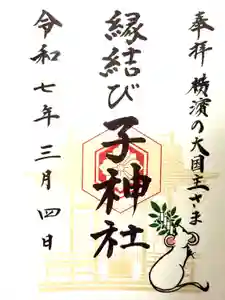 奉拝 横濱の大国主さま
縁結び 子神社
令和七年三月四日